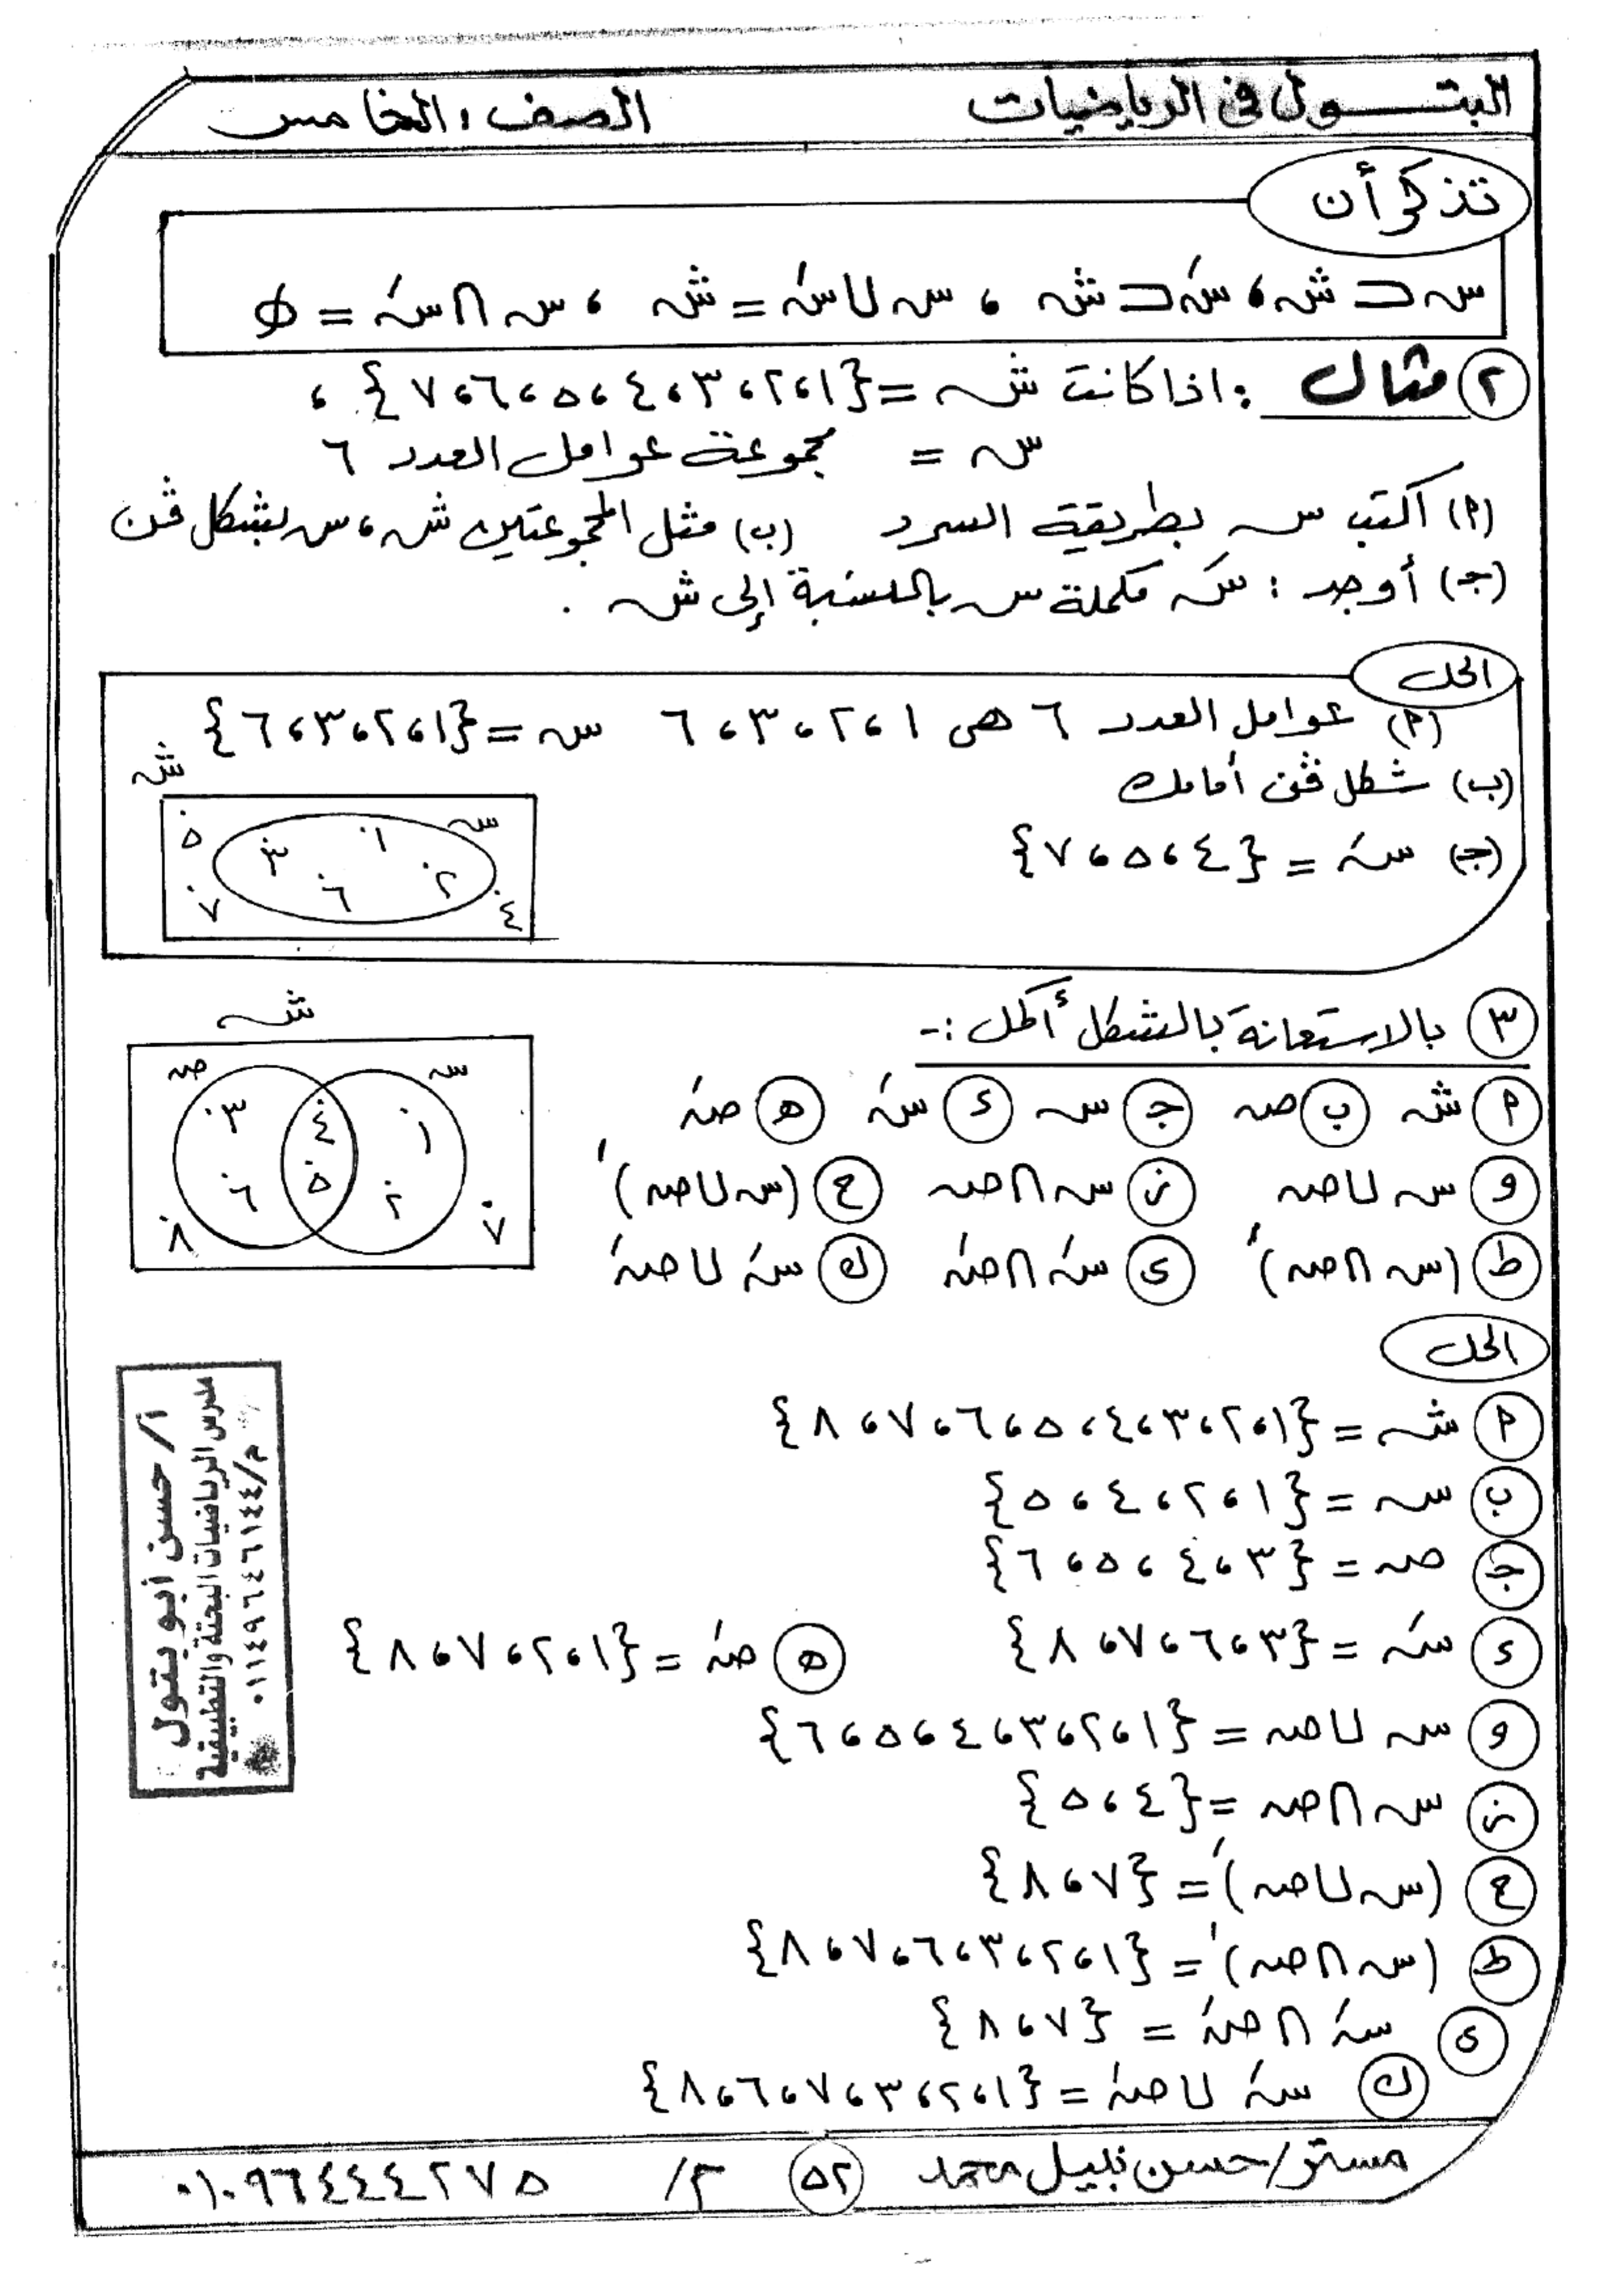 البتول في الرياضيات الصف: الخامس
تذكر أن
س ⊂ ش ، سَ ⊂ ش ، س ∪ سَ = ش ، س ∩ سَ = ∅
(٢) مثال : اذا كانت ش = {١،٢،٣،٤،٥،٦،٧} ،
س = مجموعة عوامل العدد ٦
(٩) اكتب س بطريقة السرد (ب) مثل المجموعتين ش ، س بشكل ڤن
(جـ) أوجد : سَ مكملة س بالنسبة إلى ش .
الحل
(٩) عوامل العدد ٦ هى ١،٢،٣،٦ س = {١،٢،٣،٦}
(ب) شكل ڤن أمامك
(جـ) سَ = {٤،٥،٧}
ش
س
٥ ٣ ١ ٢
٧ ٦ ٤
(٣) بالاستعانة بالشكل أكمل :-
ش
ص س
٣ ٤ ١
٦ ٥ ٢
٨ ٧
(٩) ش (ب) ص (جـ) س (ء) سَ (هـ) صَ
(و) س ∪ ص (ز) س ∩ ص (ح) (س ∪ ص)َ
(ط) (س ∩ ص)َ (ى) سَ ∩ صَ (ك) سَ ∪ صَ
الحل
(٩) ش = {١،٢،٣،٤،٥،٦،٧،٨}
(ب) س = {١،٢،٤،٥}
(جـ) ص = {٣،٤،٥،٦}
(ء) سَ = {٣،٦،٧،٨} (هـ) صَ = {١،٢،٧،٨}
(و) س ∪ ص = {١،٢،٣،٤،٥،٦}
(ز) س ∩ ص = {٤،٥}
(ح) (س ∪ ص)َ = {٧،٨}
(ط) (س ∩ ص)َ = {١،٢،٣،٦،٧،٨}
(ى) سَ ∩ صَ = {٧،٨}
(ك) سَ ∪ صَ = {١،٢،٣،٧،٦،٨}
أ/ حسن ابو بتول
مدرس الرياضيات البحتة والتطبيقية
م/٠١١٤٩٦٤٦١٤٤
مستر/ حسن نبيل محمد (٥٢) م/ ٠١٠٩٦٤٤٤٢٧٥